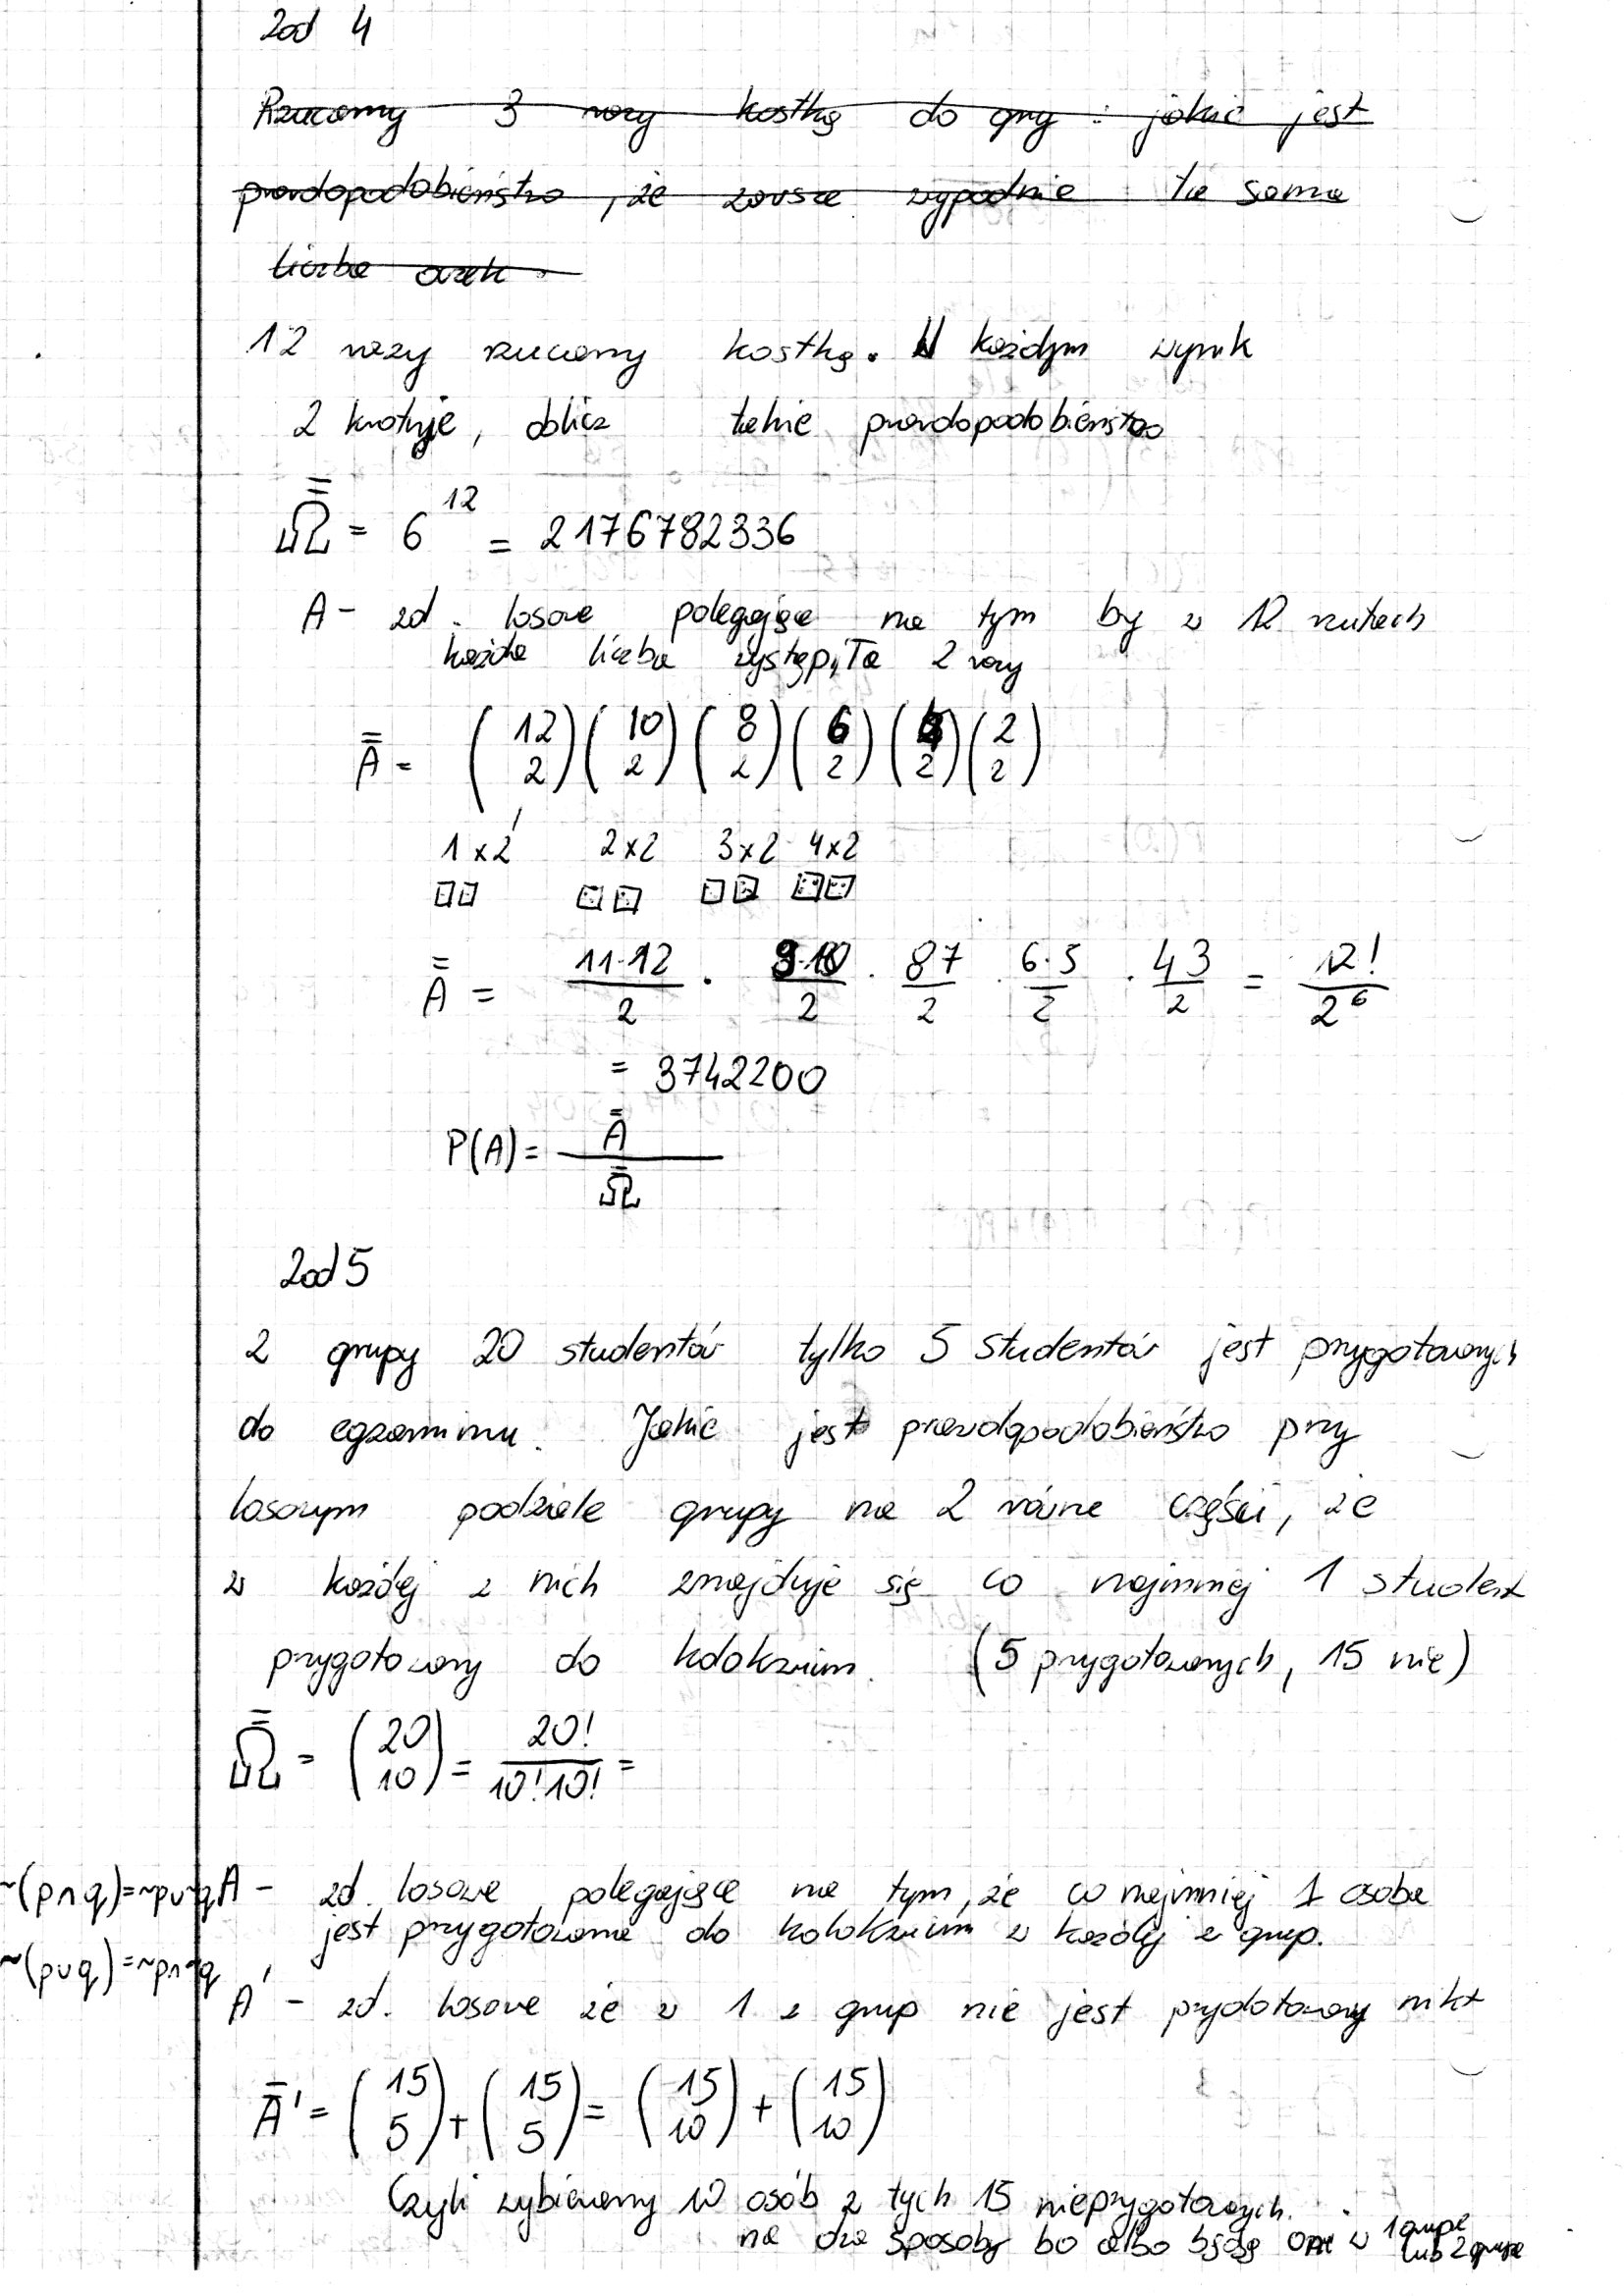 Zad 4
Rzucamy 3 razy kostką do gry : jakie jest
prawdopodobieństwo, że zawsze wypadnie ta sama
liczba oczek.
12 razy rzucamy kostką. W każdym wynik
2 krotnie, oblicz takie prawdopodobieństwo
Ω̿ = 6^12 = 2176782336
A - zd. losowe polegające na tym by w 12 rzutach
każda liczba wystąpiła 2 razy
A̿ = (12 2)(10 2)(8 2)(6 2)(4 2)(2 2)
1x2 2x2 3x2 4x2
A̿ = 11·12/2 · 9·10/2 · 87/2 · 6·5/2 · 43/2 = 12!/2^6
= 3742200
P(A) = A̿/Ω̿
Zad 5
Z grupy 20 studentów tylko 5 studentów jest przygotowanych
do egzaminu. Jakie jest prawdopodobieństwo przy
losowym podziale grupy na 2 równe części, że
w każdej z nich znajduje się co najmniej 1 student
przygotowany do kolokwium. (5 przygotowanych, 15 nie)
Ω̿ = (20 10) = 20!/10!10! =
~(p∩q)=~p∪~q A - zd. losowe polegające na tym, że co najmniej 1 osoba
jest przygotowana do kolokwium w każdej z grup.
~(p∪q)=~p∩~q
A' - zd. losowe że w 1 z grup nie jest przygotowany nikt
A̿' = (15 5)+(15 5) = (15 10) + (15 10)
Czyli wybieramy 10 osób z tych 15 nieprzygotowanych.
na dwa sposoby bo albo będą one w 1 grupie
lub 2 grupie